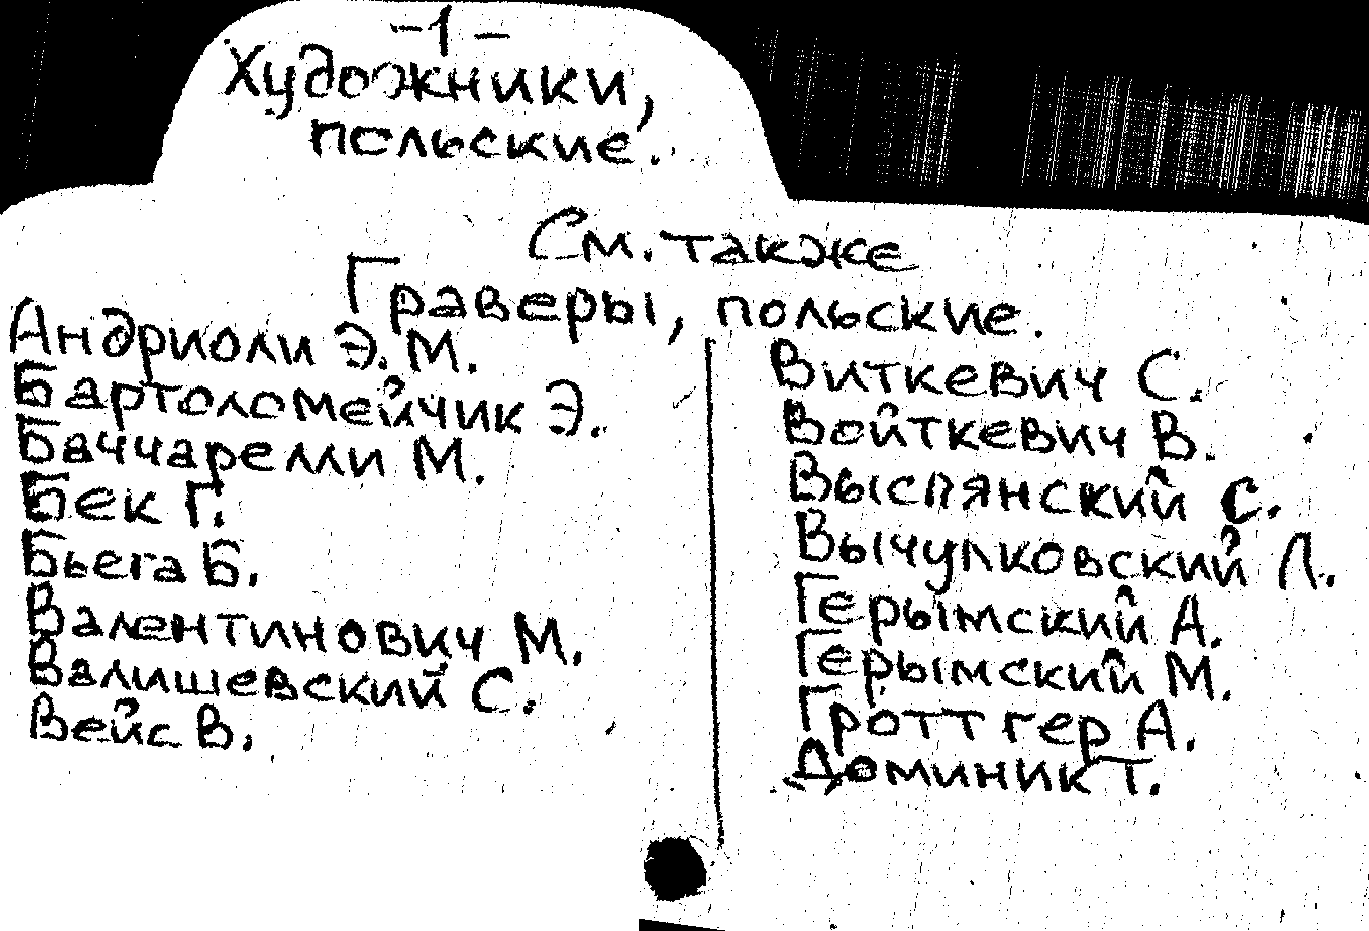 -1-
Художники,
польские.
См. также
Граверы, польские.
Андриоли Э. М.
Бартоломейчик Э.
Баччарелли М.
Бек Г.
Бьега Б.
Валентинович М.
Валишевский С.
Вейс В.
Виткевич С.
Войткевич В.
Выспянский С.
Вычулковский Л.
Герымский А.
Герымский М.
Гроттгер А.
Доминик Т.